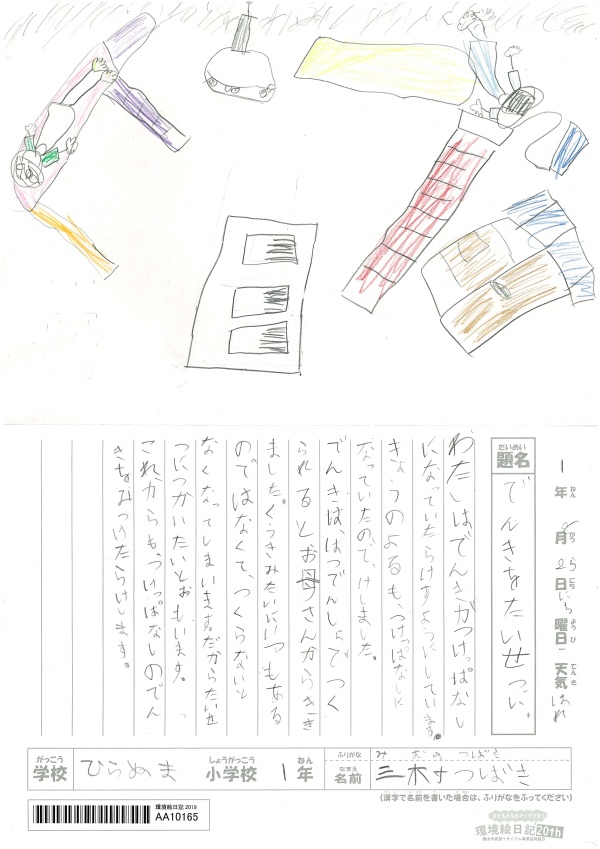 1年8月25日にち曜日 天気はれ
ねん がつ にち ようび てんき
だいめい
題名
でんきをたいせつに
わたしはでんきがつけっぱなし
になっていたらけすようにしています。
きょうのよるも、つけっぱなしに
なっていたので、けしました。
でんきは、はつでんしょでつく
られるとお母さんからきき
ました。くうきみたいにいつもある
のではなくて、つくらないと
なくなってしまいます。だからたいせ
つにつかいたいとおもいます。
これからも、つけっぱなしのでん
きをみつけたらけします。
がっこう しょうがっこう ねん
学校 ひらぬま 小学校 1年
ふりがな つばき
なまえ
名前 三木寸つばき
(漢字で名前を書いた場合は、ふりがなをふってください)
環境絵日記2019
AA10165
環境絵日記20th